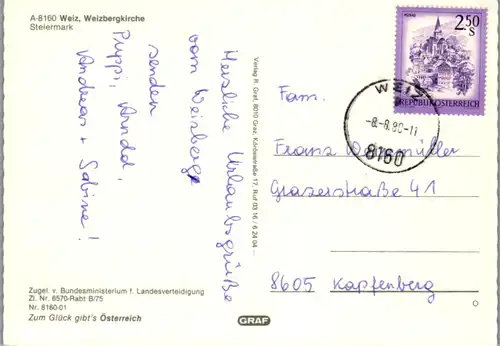 A-8160 Weiz, Weizbergkirche
Steiermark
Herzliche Urlaubsgrüße
vom Weizberg
senden
Puppi, Arnold,
Andreas + Sabine!
Zugel. v. Bundesministerium f. Landesverteidigung
Zl. Nr. 6570-Rabt B/75
Nr. 8160-01
Zum Glück gibt's Österreich
Verlag R. Graf, 8010 Graz, Körösistraße 17, Ruf 03 16 / 6 24 04 –
GRAF
2.50
S
MURAU
REPUBLIK ÖSTERREICH
WEIZ
-8.-8.80-11
8160
Fam.
Franz
Grazerstraße 41
8605 Kapfenberg